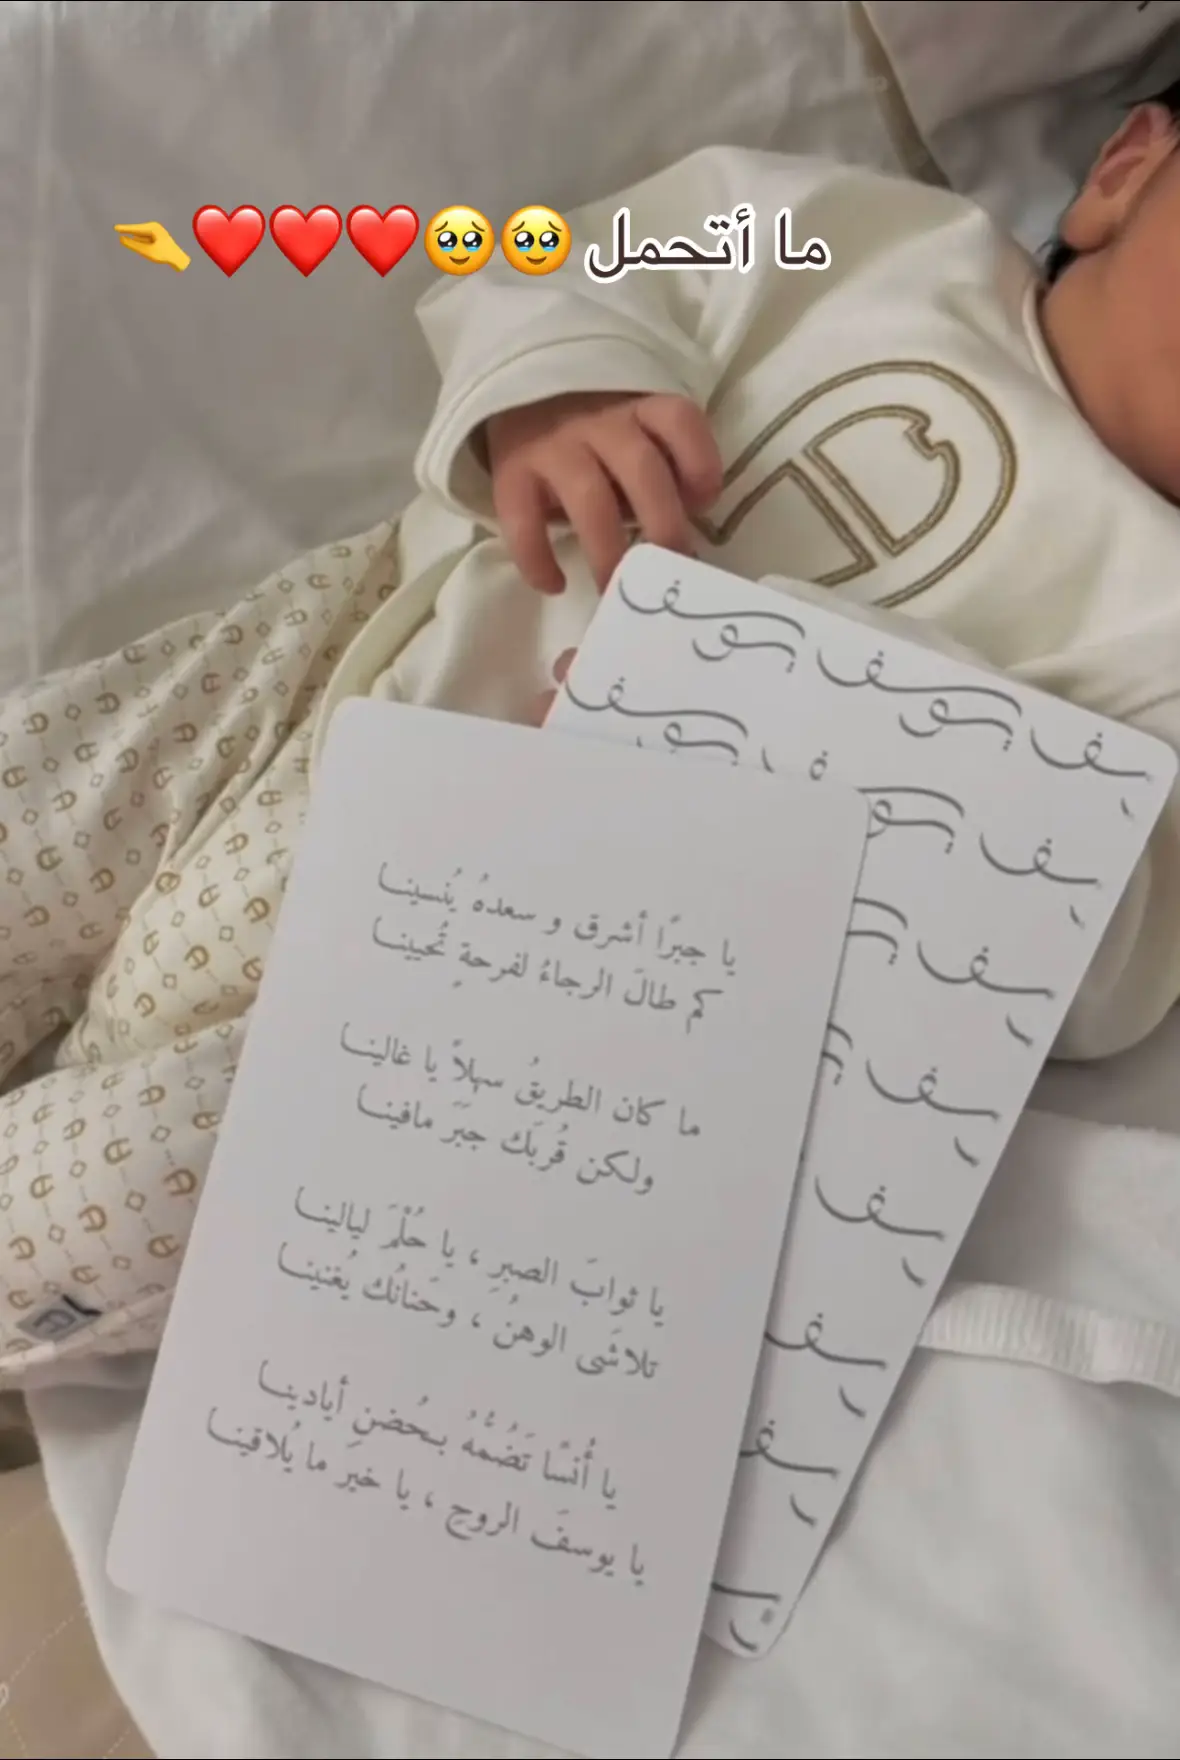 ما أتحمل 🥹🥹❤️❤️❤️🫴
يوسف يوسف يوسف
يا جبرًا أشرق و سعدهُ يُنسينا
كم طالَ الرجاءُ لفرحةٍ تُحيينا
ما كان الطريقُ سهلاً يا غالينا
ولكن قُربَك جبَرَ مافينا
يا ثوابَ الصبرِ ، يا حُلْمَ ليالينا
تلاشَى الوهنُ ، وحَنانُك يُغنينا
يا أُنسًا تَضُمُّهُ بحُضنِ أيادينا
يا يوسفَ الروحِ ، يا خيرَ ما يُلاقينا